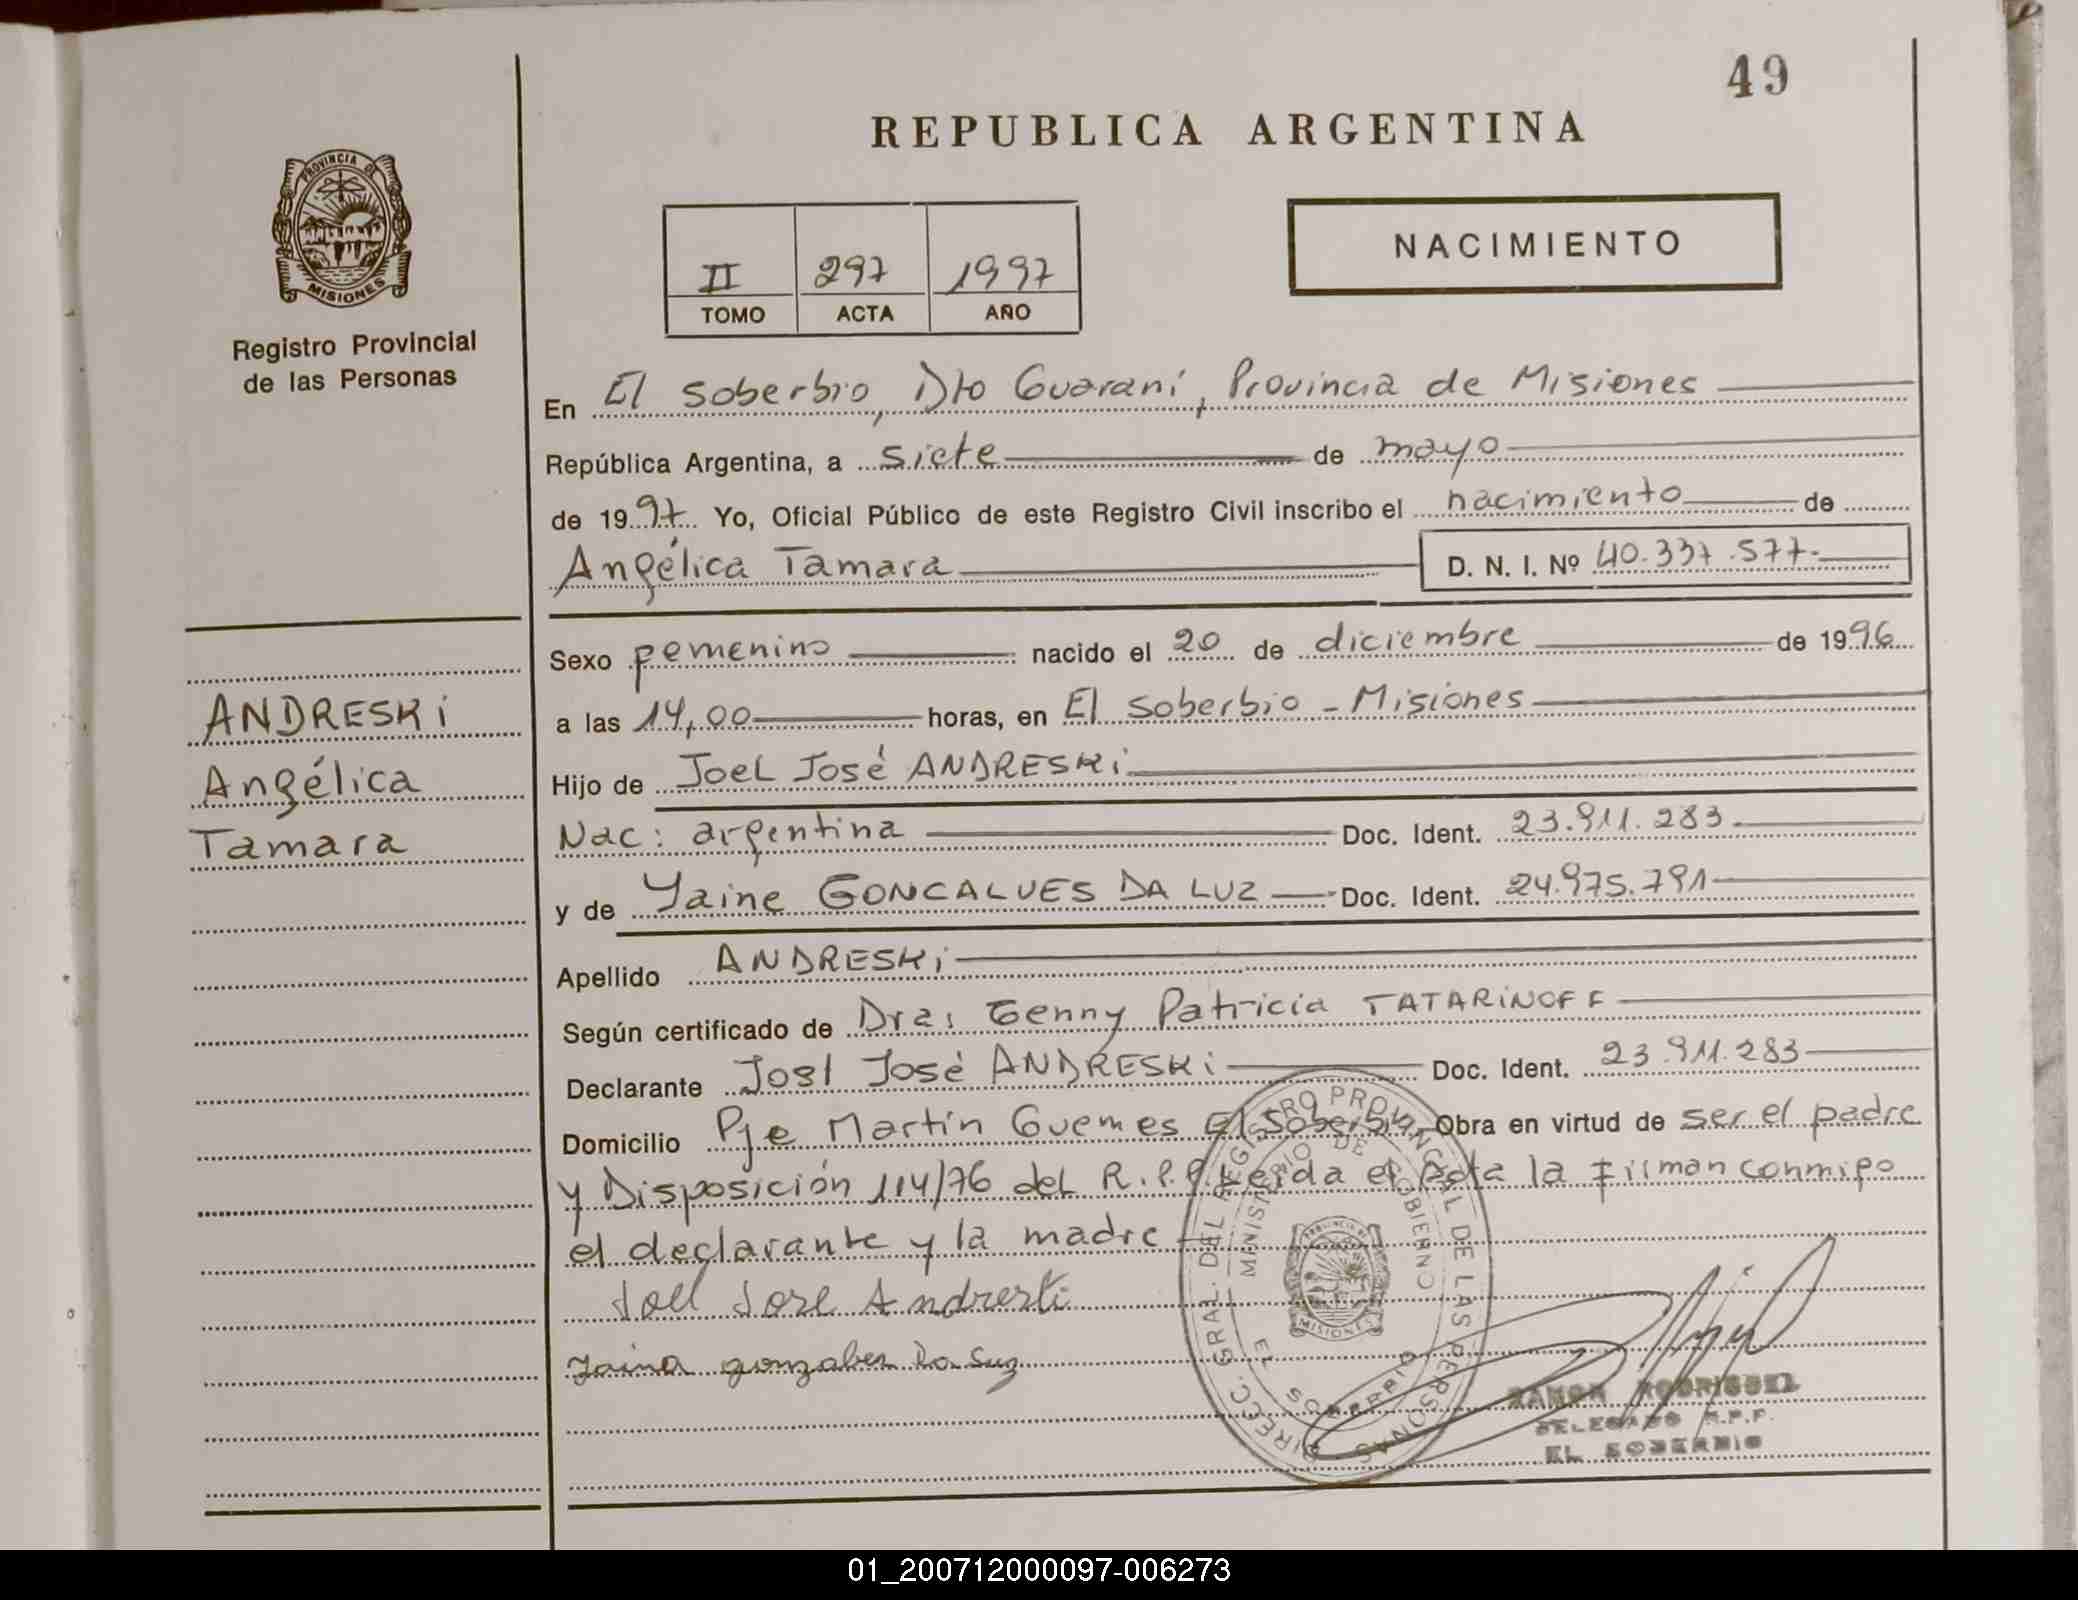 49
REPUBLICA ARGENTINA
PROVINCIA DE
MISIONES
Registro Provincial
de las Personas
II 297 1997
TOMO ACTA AÑO
NACIMIENTO
En El Soberbio, Dto Guaraní, Provincia de Misiones
República Argentina, a siete de mayo
de 1997 Yo, Oficial Público de este Registro Civil inscribo el nacimiento de
Angélica Tamara D. N. I. Nº 40.337.577
Sexo femenino nacido el 20 de diciembre de 1996
ANDRESKi
Angélica
Tamara
a las 14,00 horas, en El Soberbio - Misiones
Hijo de Joel José ANDRESKi
Nac: argentina Doc. Ident. 23.911.283
y de Yaine GONCALVES DA LUZ Doc. Ident. 24.975.791
Apellido ANDRESKi
Según certificado de Dra: Genny Patricia TATARiNOFF
Declarante Joel José ANDRESKi Doc. Ident. 23.911.283
Domicilio Pje Martín Guemes El Soberbio Obra en virtud de ser el padre
y Disposición 114/76 del R.P.P. Leida el Acta la firman conmigo
el declarante y la madre
Joel Jose Andreski
Jaina gonzalves Da Luz
DIREC. GRAL. DEL REGISTRO PROVINCIAL DE LAS PERSONAS
MINISTERIO DE GOBIERNO
MISIONES
EL SOBERBIO
RAMON RODRIGUEZ
DELEGADO R.P.P.
EL SOBERBIO
01_200712000097-006273